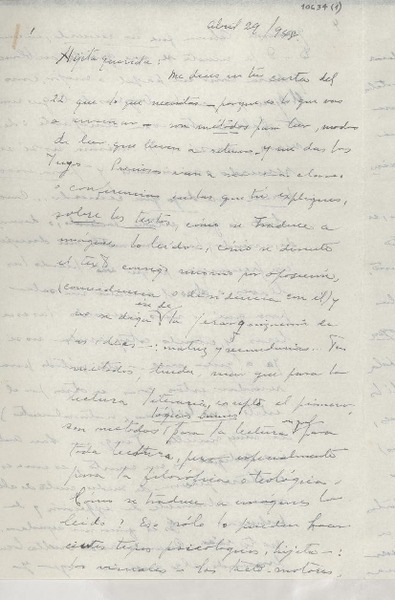 10634 (1)
abril 29/948
Hijita querida:
Me dices en tu carta del
22 que lo que necesitas – porque es lo que vas
a enseñar – son métodos para leer, modos
de leer que lleven a retener, y me das los
tuyos. Precioso
conferencias en las que tú expliques,
sobre los textos, cómo se traduce a
imágenes lo leído, cómo se discute
el texto consigo mismo por oposición,
(coincidencia o disidencia con él) y
en de
las ideas – matriz y secundarias. Tus
métodos, Hijita, más que para la
lectura literaria, excepto el primero,
lógicos buenos
son métodos para la lectura y para
toda lectura, pero especialmente
para la filosófica o teológica.
Cómo se traduce a imágenes lo
leído? Eso sólo lo pueden hacer
ciertos tipos psicológicos, hijita –:
los visuales o los motores,